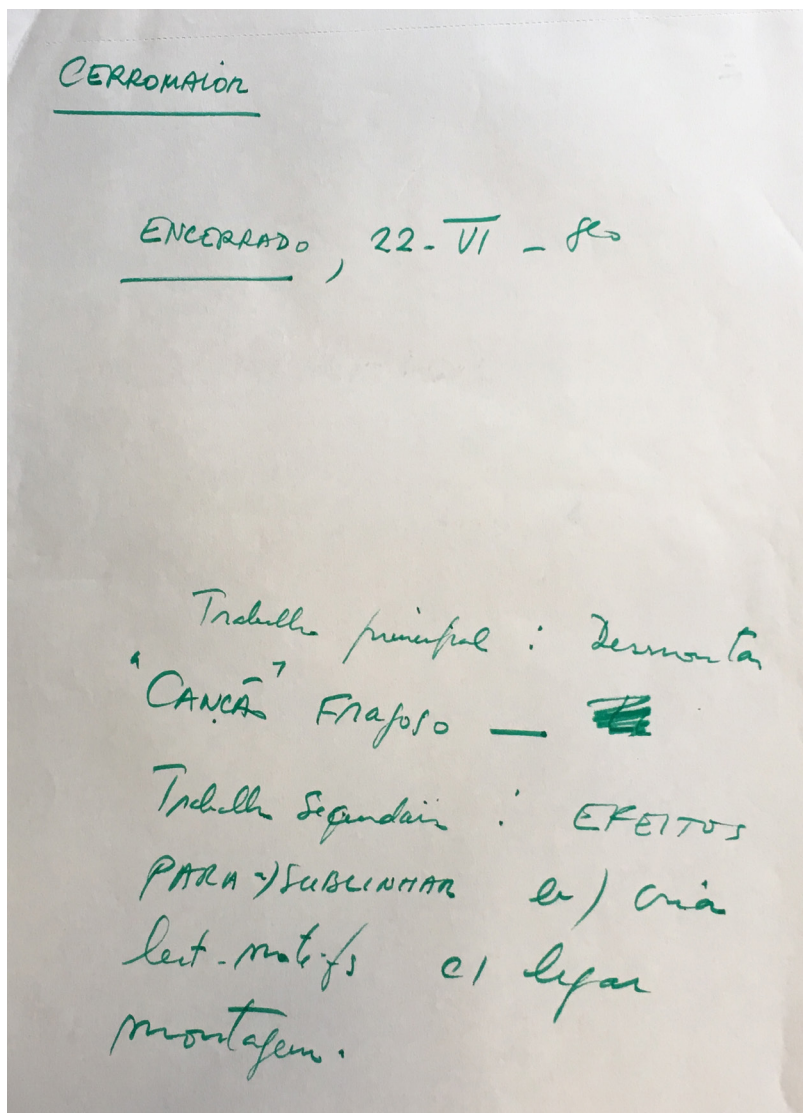 CERROMAIOR
ENCERRADO, 22-VI-80
Trabalho principal : Desmontar
"CANÇÃO" FRAGOSO —
Trabalho Secundário : EFEITOS
PARA a) SUBLINHAR b) criar
leit-motifs c) ligar
montagem.